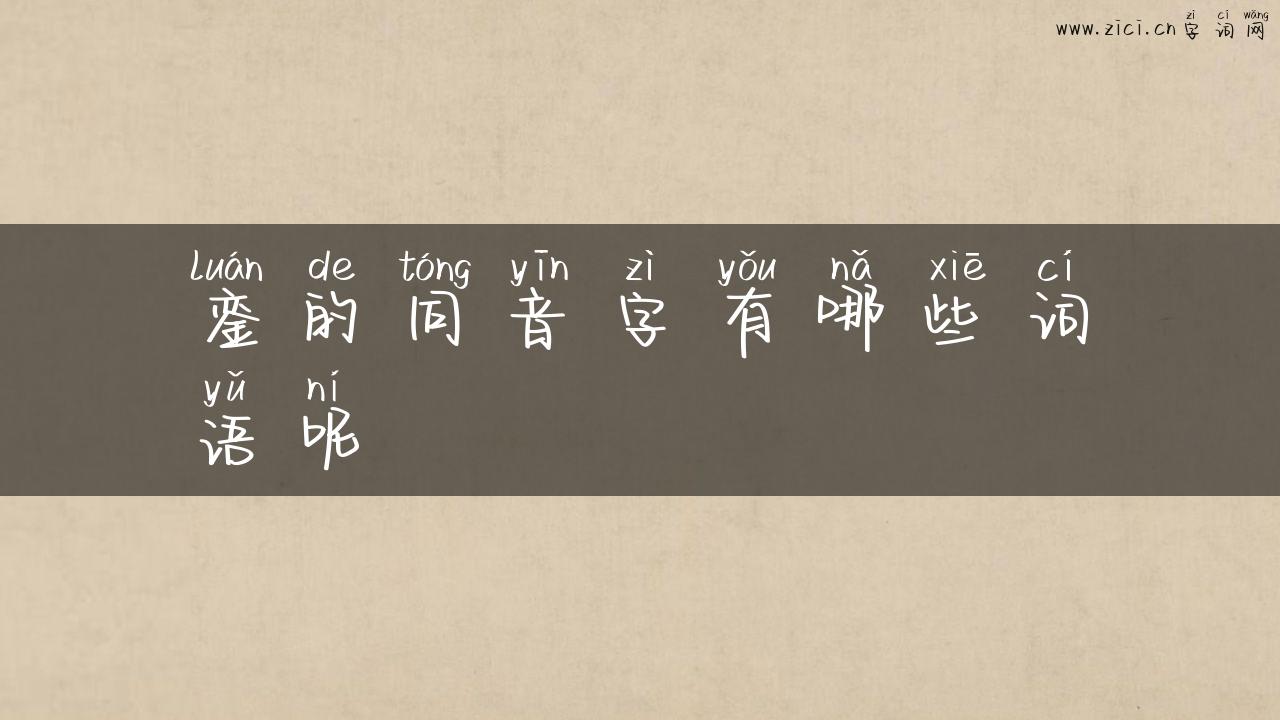 zì cí wǎng
www.zici.cn 字词网
luán de tóng yīn zì yǒu nǎ xiē cí
銮的同音字有哪些词
yǔ ní
语呢